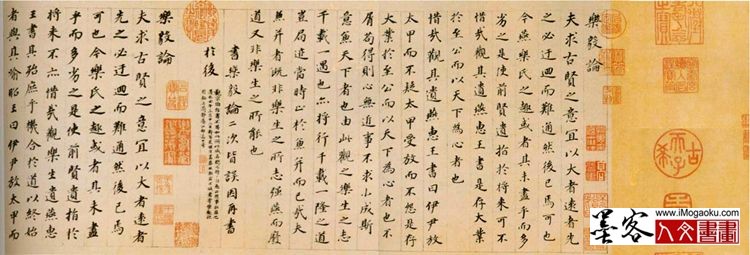 樂毅論
夫求古賢之意宜以大者遠者先
之必迂迴而難通然後已焉可也
今燕樂氏之趣或者其未盡乎而多
劣之是使前賢遺指於將來可不
惜哉觀其遺燕惠王書是存大業
於至公而以天下為心者也
惜哉觀其遺燕惠王書曰伊尹放
太甲而不疑太甲受放而不怨是存
大業於至公而以天下為心者也不
屑苟得則心無近事不求小成斯
意兼天下者也由此觀之樂生之志
千載一遇也亦將行千載一隆之道
豈局迹當時止於兼并而已哉夫
兼并者既非樂生之所志強燕而廢
道又非樂生之所能也
書樂毅論二次皆誤因再書
於後
樂毅論
夫求古賢之意宜以大者遠者
先之必迂迴而難通然後已焉
可也今樂氏之趣或者其未盡
乎而多劣之是使前賢遺指於
將來不亦惜哉觀樂生遺燕惠
王書其殆庶乎機合於道以終始
者與其喻昭王曰伊尹放太甲而
古希天子
墨客
www.iMogaoku.com
人文書畫